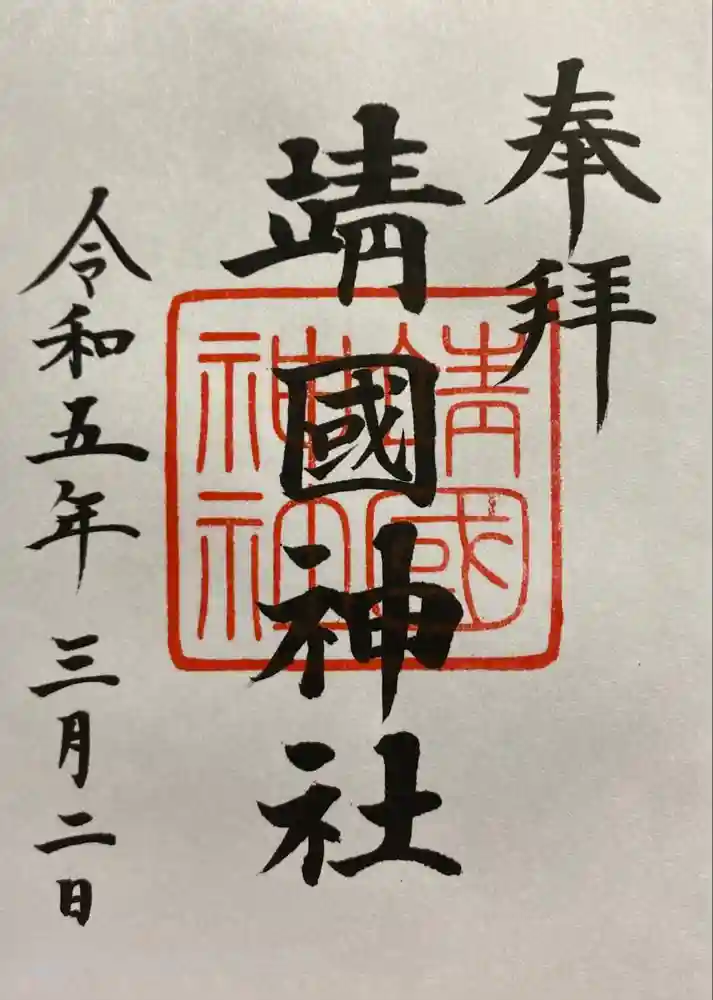 奉拝
靖國神社
靖國神社
令和五年三月二日